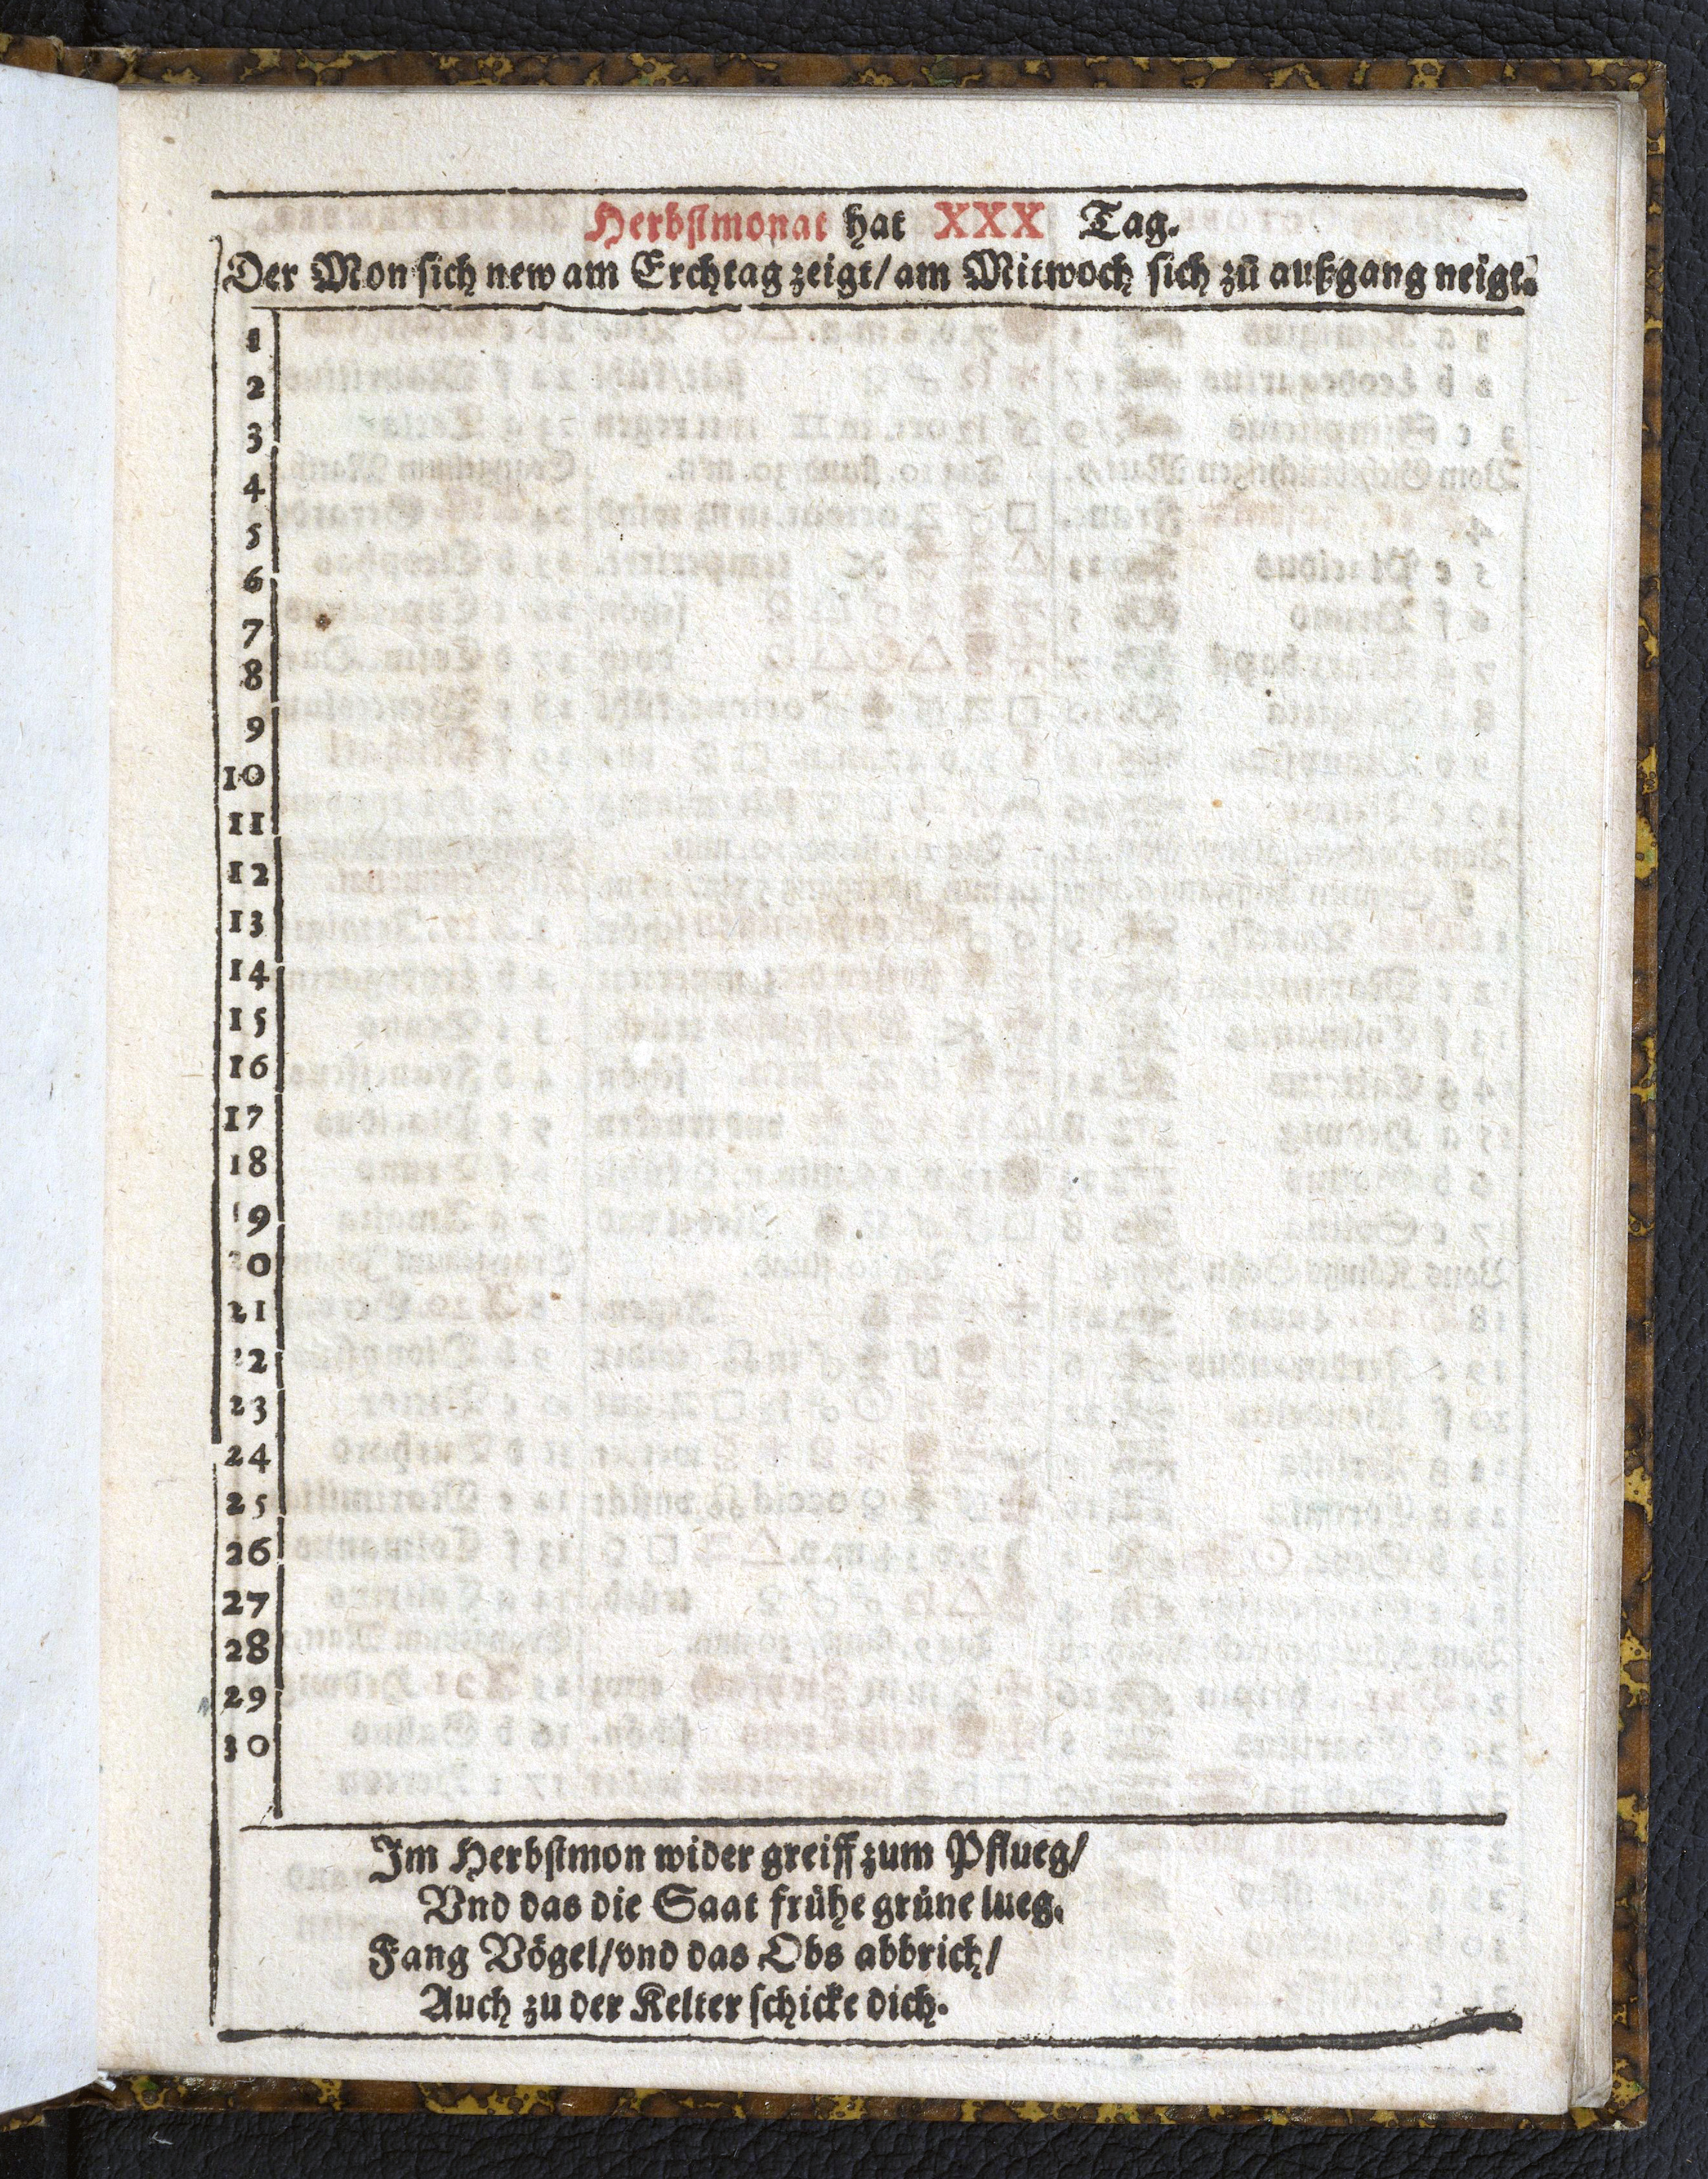 Herbstmonat hat XXX Tag.
Der Mon sich new am Erchtag zeigt/ am Mitwoch sich zū außgang neigt.
1
2
3
4
5
6
7
8
9
10
11
12
13
14
15
16
17
18
19
20
21
22
23
24
25
26
27
28
29
30
Im Herbstmon wider greiff zum Pflueg/
Vnd das die Saat frühe grüne lueg.
Fang Vögel/ vnd das Obs abbrich/
Auch zu der Kelter schicke dich.